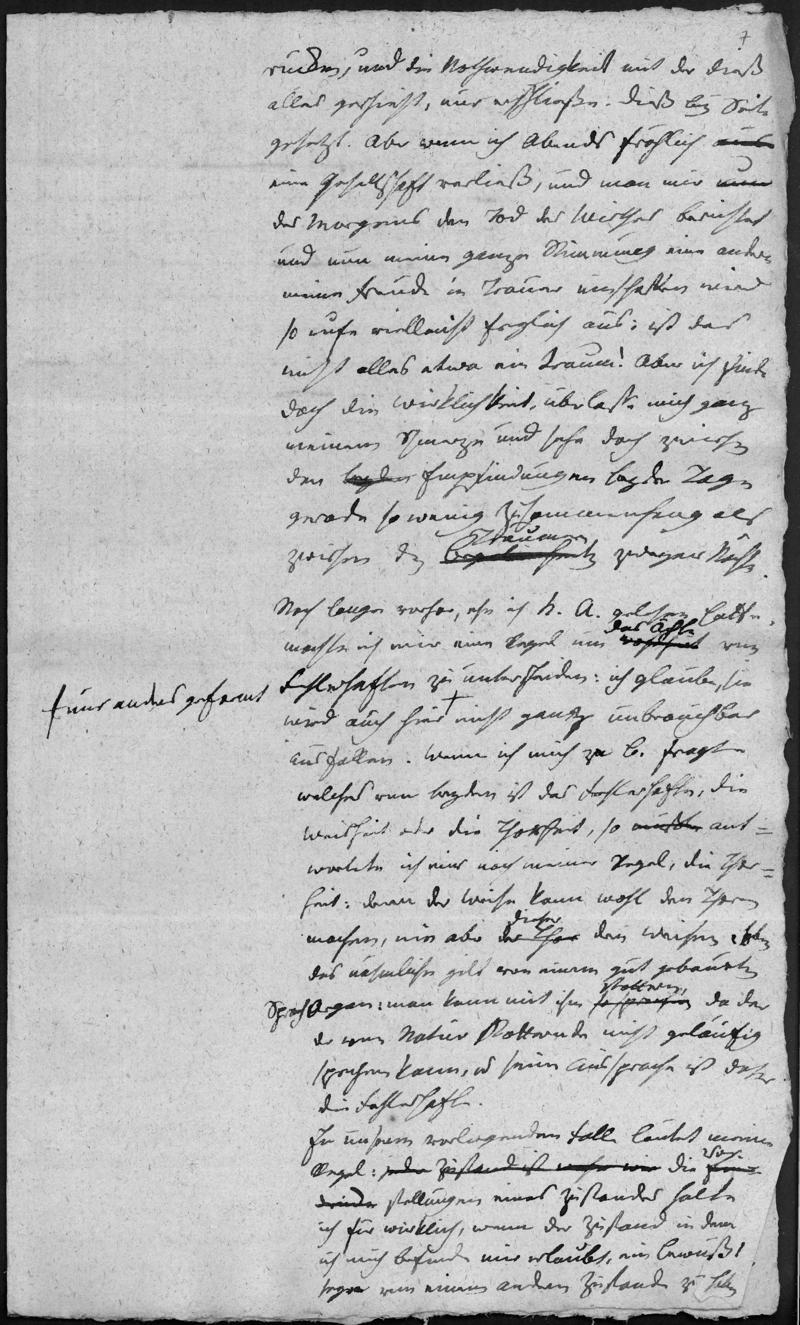 7
rücken, und die Nothwendigkeit mit der dieß
alles geschieht, nur erschließen. Dieß bey Seite
gesetzt. Aber wenn ich Abends frölich aus
einer Gesellschaft verließ, und man mir nun
des Morgens den Tod des Wirthes berichtet
und nun meine ganze Stimmung eine andere
meine Freude in Trauer umschaffen wird
so rufe vielleicht freylich aus: ist das
nicht alles etwa ein Traum! Aber ich finde
doch die Wirklichkeit, überlasse mich ganz
meinem Schmerze und sehe doch zwischen
den beyden Empfindungen beyder Tage
gerade so wenig Zusammenhang als
Träumen
zwischen den zweyer Nächte.
Noch lange vorher, ehe ich K. A. gelesen hatte,
das Ächte
machte ich mir eine Regel um vom
Fehlerhaften zu unterscheiden: ich glaube, sie
f nur anders geformt
wird auch hier nicht ganz unbrauchbar
ausfallen. Wenn ich mich z. B. fragte
welches von beyden ist das Fehlerhafte, die
Weisheit oder die Thorheit, so ant=
wortete ich mir nach meiner Regel, die Thor=
heit: denn der Weise kann wohl den Thoren
dieser
machen, nie aber der Thor den Weisen. Eben
das nämliche gilt von einem gut gebauten
stottern,
Sprach Organ: man kann mit ihm da der
der von Natur Stotternde nicht geläufig
sprechen kann, u seine Aussprache ist daher
die Fehlerhafte.
In unserm vorliegenden Falle lautet meine
Vor
Regel: jeder Zustand ist wahr wie die
stellungen eines Zustandes halte
ich für wirklich, wenn der Zustand in dem
ich mich befinde mir erlaubt, ein Bewußt
seyn von einem andern Zustande zu haben